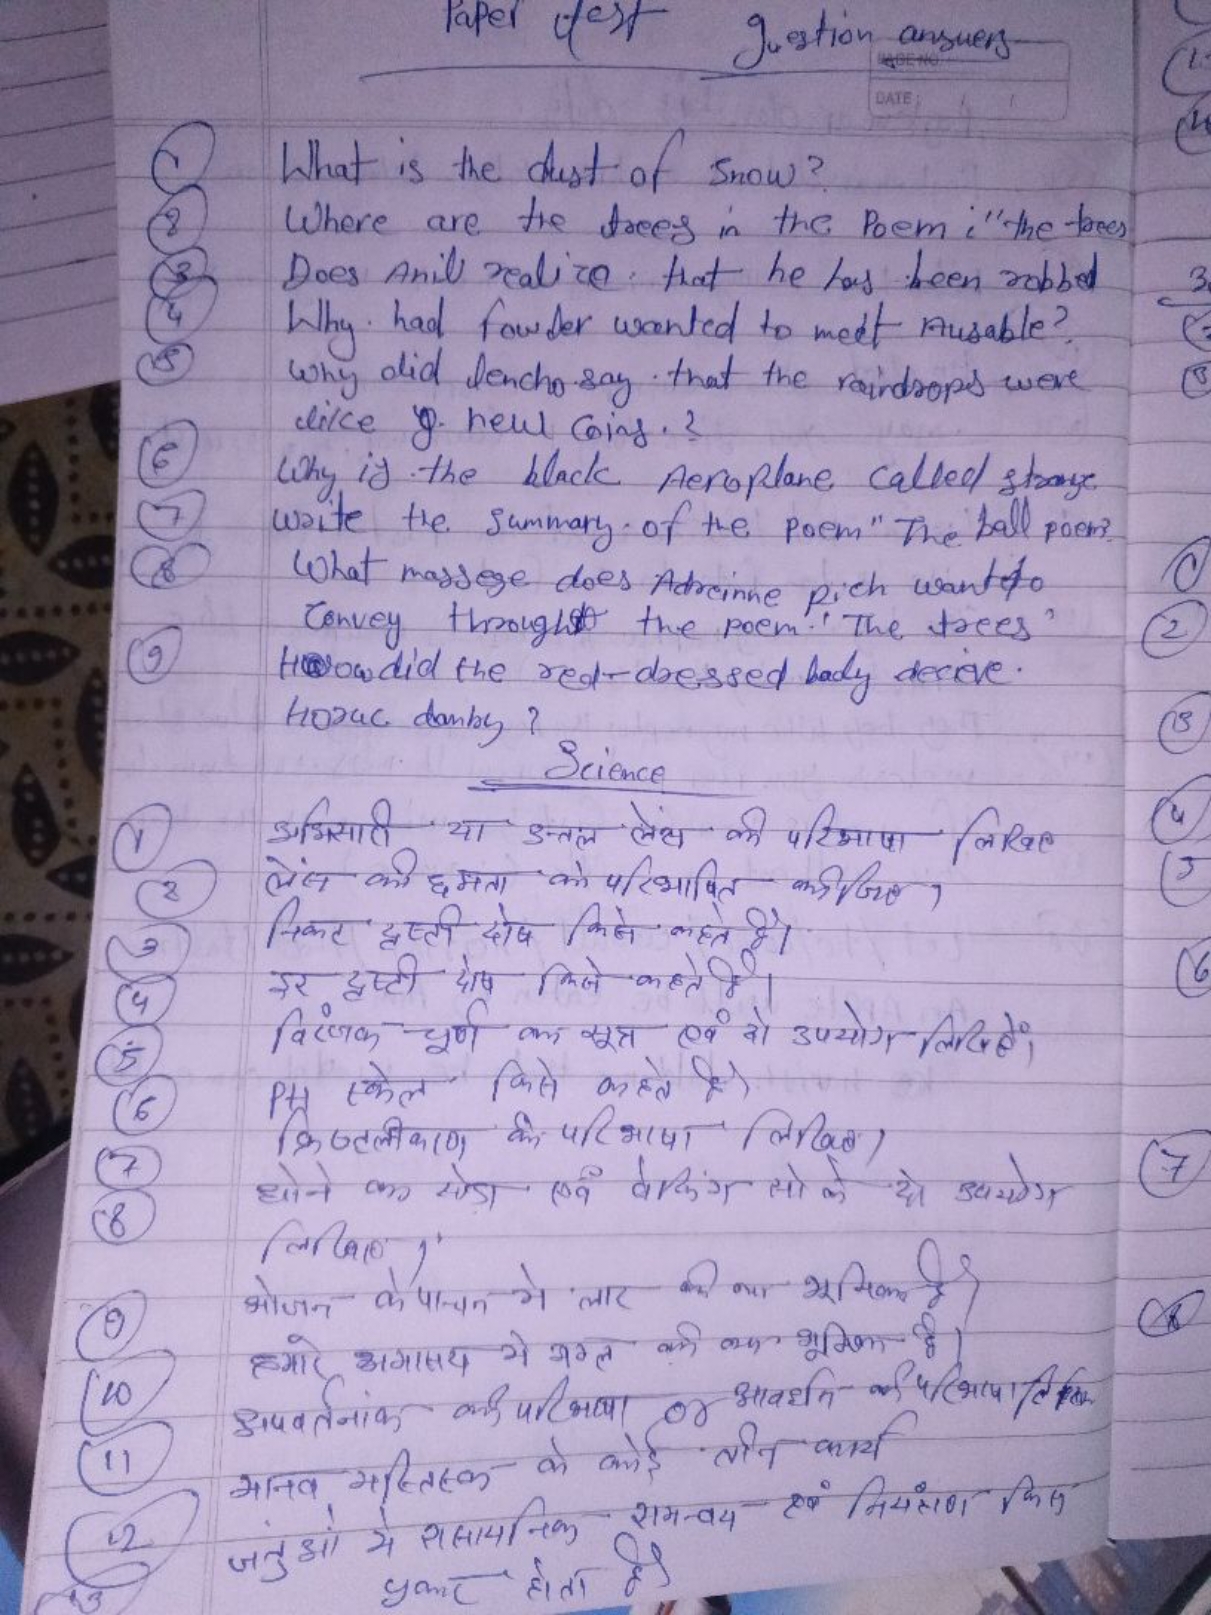 Paper test question answers
PAGE NO.
DATE: / /
1 What is the dust of snow?
2 Where are the trees in the Poem: "the trees
3 Does Anil realize that he has been robbed
4 Why had fowder wanted to meet Ausable?
5 Why did lencho say that the raindrops were
like new coins.?
6 Why is the black Aeroplane called strange
7 write the summary of the poem "The ball poem?
8 What massege does Adreinne Rich want to
convey through the poem "The trees"
9 How did the red-dressed lady decieve
Horac danby?
Science
1 अभिसारी या उत्तल लेंस की परिभाषा लिखिए
2 लेंस की क्षमता को परिभाषित कीजिए।
3 निकट दृष्टी दोष किसे कहते है।
4 दूर दृष्टी दोष किसे कहते है।
5 विरंजक चूर्ण का सूत्र एवं दो उपयोग लिखिऐं।
6 PH स्केल किसे कहते है।
7 क्रिस्टलीकरण की परिभाषा लिखिए।
8 धोने का सोडा एवं बेकिंग सो के दो उपयोग
लिखिए।
9 भोजन के पाचन मे लार की क्या भूमिका है।
10 हमारे अमासय मे अम्ल की क्या भूमिका है।
11 अपवर्तनांक की परिभाषा or आवर्धन की परिभाषा
12 मानव मस्तिस्क के कोई तीन कार्य
13 जंतुओ मे रासायनिक समन्वय एवं नियंत्रण किस
प्रकार होता है।